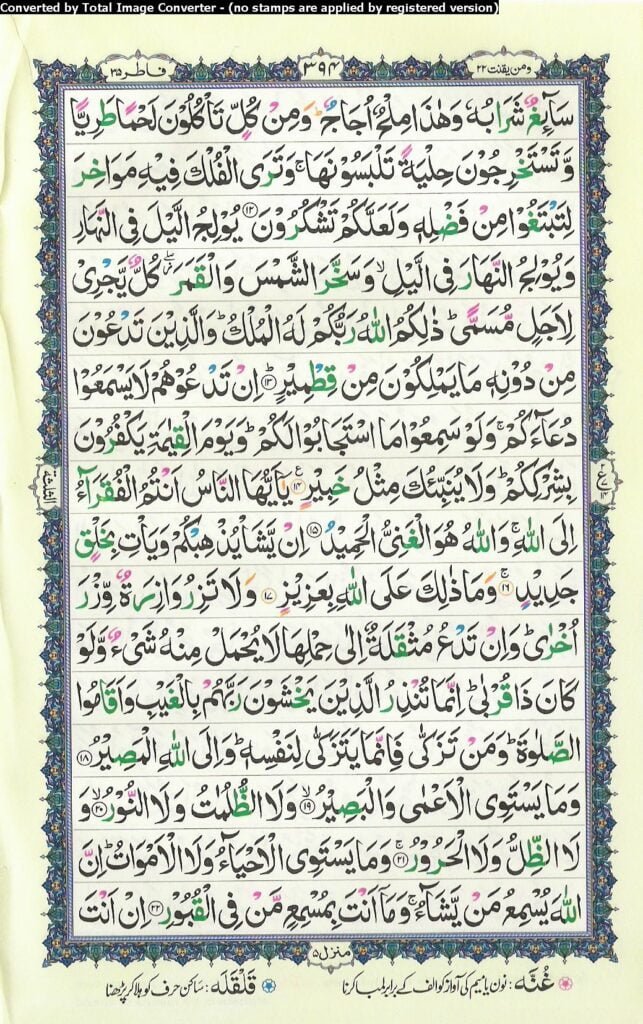 Converted by Total Image Converter - (no stamps are applied by registered version)
ومن یقنت ۲۲
۳۹۴
فاطر ۳۵
سَآىِٕغٌ شَرَابُهٗ وَهٰذَا مِلْحٌ اُجَاجٌ ؕ وَمِنْ كُلٍّ تَاْكُلُوْنَ لَحْمًا طَرِيًّا
وَّتَسْتَخْرِجُوْنَ حِلْيَةً تَلْبَسُوْنَهَا ۚ وَتَرَى الْفُلْكَ فِيْهِ مَوَاخِرَ
لِتَبْتَغُوْا مِنْ فَضْلِهٖ وَلَعَلَّكُمْ تَشْكُرُوْنَ ﴿۱۲﴾ يُوْلِجُ الَّيْلَ فِى النَّهَارِ
وَيُوْلِجُ النَّهَارَ فِى الَّيْلِ ۙ وَسَخَّرَ الشَّمْسَ وَالْقَمَرَ ۖ كُلٌّ يَّجْرِىْ
لِاَجَلٍ مُّسَمًّى ؕ ذٰلِكُمُ اللّٰهُ رَبُّكُمْ لَهُ الْمُلْكُ ؕ وَالَّذِيْنَ تَدْعُوْنَ
مِنْ دُوْنِهٖ مَا يَمْلِكُوْنَ مِنْ قِطْمِيْرٍ ؕ ﴿۱۳﴾ اِنْ تَدْعُوْهُمْ لَا يَسْمَعُوْا
دُعَآءَكُمْ ۚ وَلَوْ سَمِعُوْا مَا اسْتَجَابُوْا لَكُمْ ؕ وَيَوْمَ الْقِيٰمَةِ يَكْفُرُوْنَ
بِشِرْكِكُمْ ؕ وَلَا يُنَبِّئُكَ مِثْلُ خَبِيْرٍ ﴿۱۴﴾ ع يٰٓاَيُّهَا النَّاسُ اَنْتُمُ الْفُقَرَآءُ
اِلَى اللّٰهِ ۚ وَاللّٰهُ هُوَ الْغَنِىُّ الْحَمِيْدُ ﴿۱۵﴾ اِنْ يَّشَاْ يُذْهِبْكُمْ وَيَاْتِ بِخَلْقٍ
جَدِيْدٍ ۚ ﴿۱۶﴾ وَمَا ذٰلِكَ عَلَى اللّٰهِ بِعَزِيْزٍ ﴿۱۷﴾ وَلَا تَزِرُ وَازِرَةٌ وِّزْرَ
اُخْرٰى ؕ وَاِنْ تَدْعُ مُثْقَلَةٌ اِلٰى حِمْلِهَا لَا يُحْمَلْ مِنْهُ شَىْءٌ وَّلَوْ
كَانَ ذَا قُرْبٰى ؕ اِنَّمَا تُنْذِرُ الَّذِيْنَ يَخْشَوْنَ رَبَّهُمْ بِالْغَيْبِ وَاَقَامُوا
الصَّلٰوةَ ؕ وَمَنْ تَزَكّٰى فَاِنَّمَا يَتَزَكّٰى لِنَفْسِهٖ ؕ وَاِلَى اللّٰهِ الْمَصِيْرُ ﴿۱۸﴾
وَمَا يَسْتَوِى الْاَعْمٰى وَالْبَصِيْرُ ۙ ﴿۱۹﴾ وَلَا الظُّلُمٰتُ وَلَا النُّوْرُ ۙ ﴿۲۰﴾ وَ
لَا الظِّلُّ وَلَا الْحَرُوْرُ ۚ ﴿۲۱﴾ وَمَا يَسْتَوِى الْاَحْيَآءُ وَلَا الْاَمْوَاتُ ؕ اِنَّ
اللّٰهَ يُسْمِعُ مَنْ يَّشَآءُ ۚ وَمَآ اَنْتَ بِمُسْمِعٍ مَّنْ فِى الْقُبُوْرِ ﴿۲۲﴾ اِنْ اَنْتَ
الثلثة
ع
منزل ۵
غُنَّه: نون یا میم کی آواز کو الف کے برابر لمبا کرنا
قَلْقَلَه: ساکن حرف کو ہلا کر پڑھنا